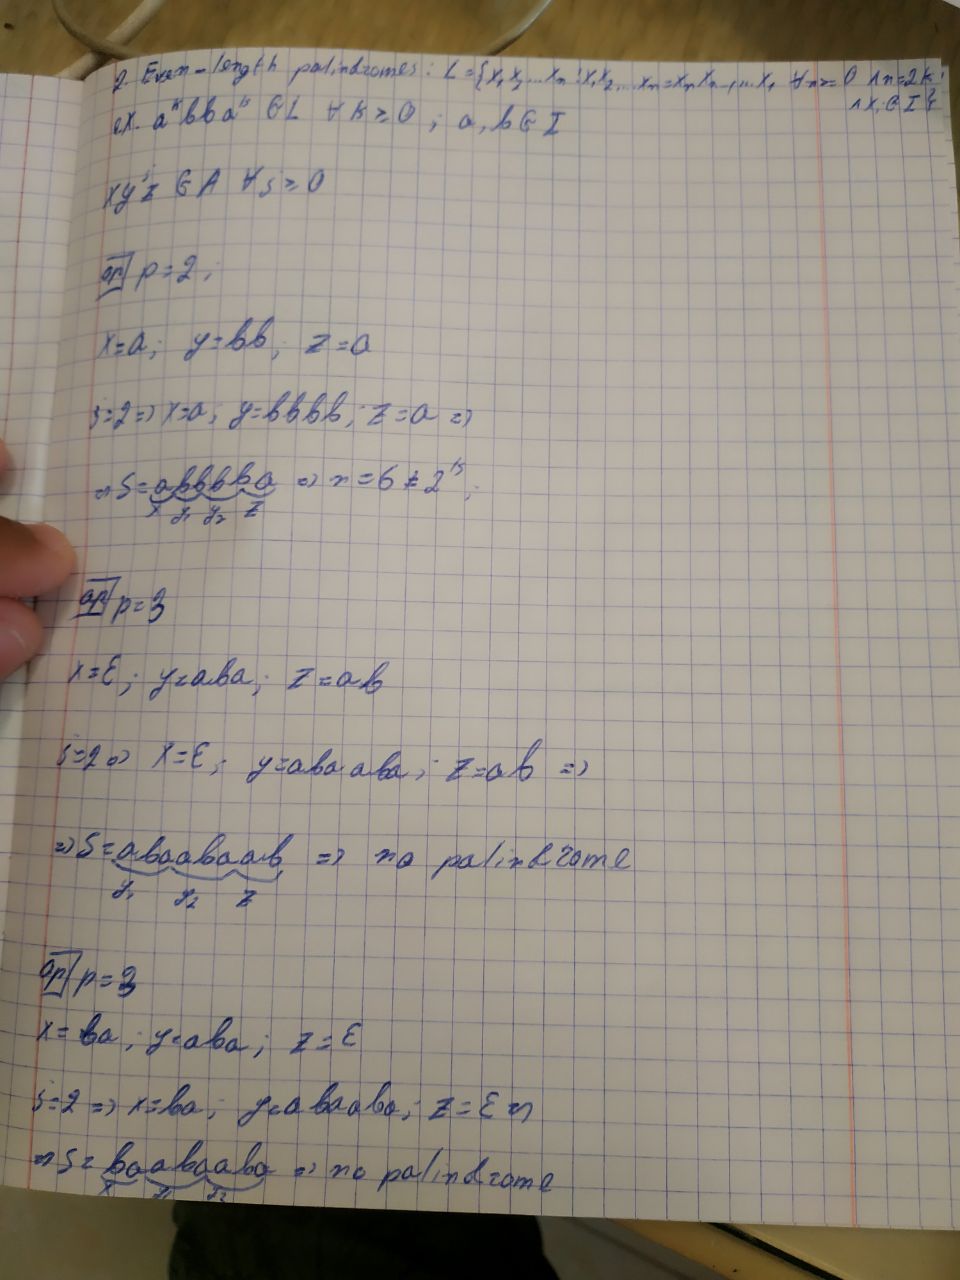 2. Even-length palindromes: L={x₁x₂...xₙ : x₁x₂...xₙ=xₙxₙ₋₁...x₁ ∀n>=0 ∧n=2k;
∧xᵢ∈I}
ex. aᵏbbaᵏ ∈L ∀k≥0; a,b∈I
xyⁱz ∈A ∀i≥0
op p=2;
x=a; y=bb; z=a
i=2=>x=a; y=bbbb; z=a =>
=> S=abbbba => n=6≠2ᵏ;
x y₁ y₂ z
op p=3
x=ε; y=aba; z=ab
i=2=> x=ε; y=abaaba; z=ab =>
=> S=abaabaab => no palindrome
y₁ y₂ z
op p=3
x=ba; y=aba; z=ε
i=2 => x=ba; y=abaaba; z=ε =>
=> S=baabaaba => no palindrome
x y₁ y₂